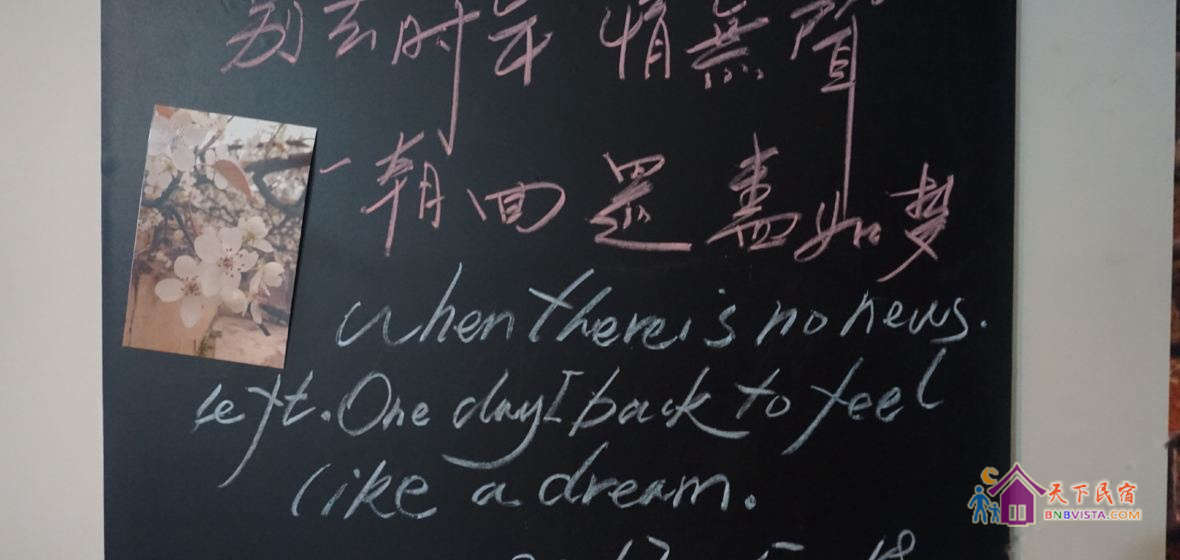 别去时年 悄無聲
一朝回還盡如梦
when there is no news.
left. One day I back to feel
like a dream.
天下民宿
BNBVISTA.COM